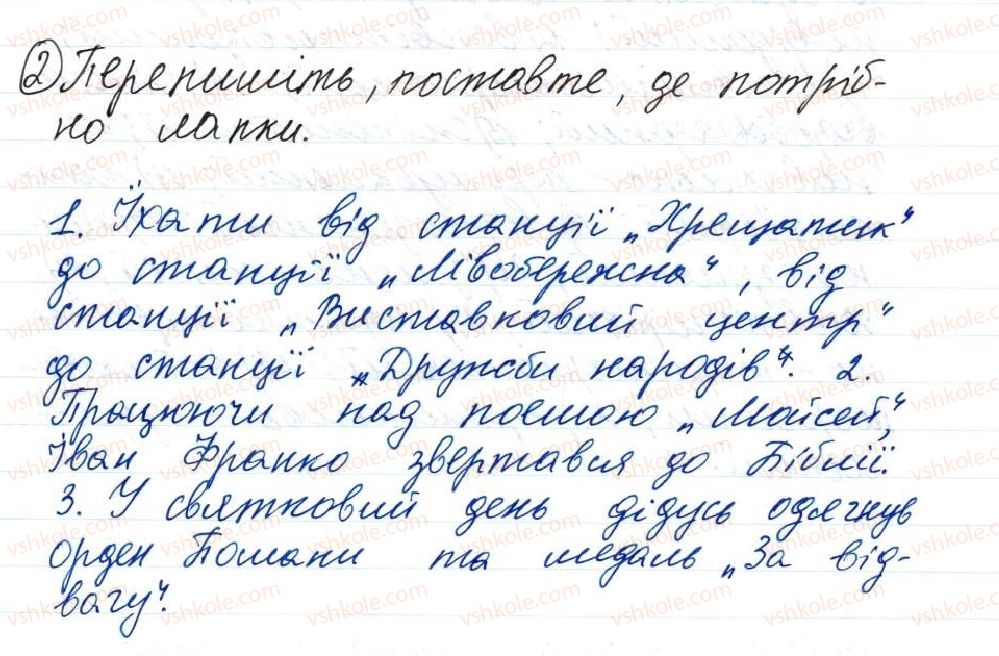 ② Перепишіть, поставте, де потріб-
но лапки.
1. Їхати від станції „Хрещатик“
до станції „Лівобережна“, від
станції „Виставковий центр“
до станції „Дружби народів“. 2.
Працюючи над поемою „Мойсей“,
Іван Франко звертався до Біблії.
3. У святковий день дідусь одягнув
орден Пошани та медаль „За від-
вагу“.